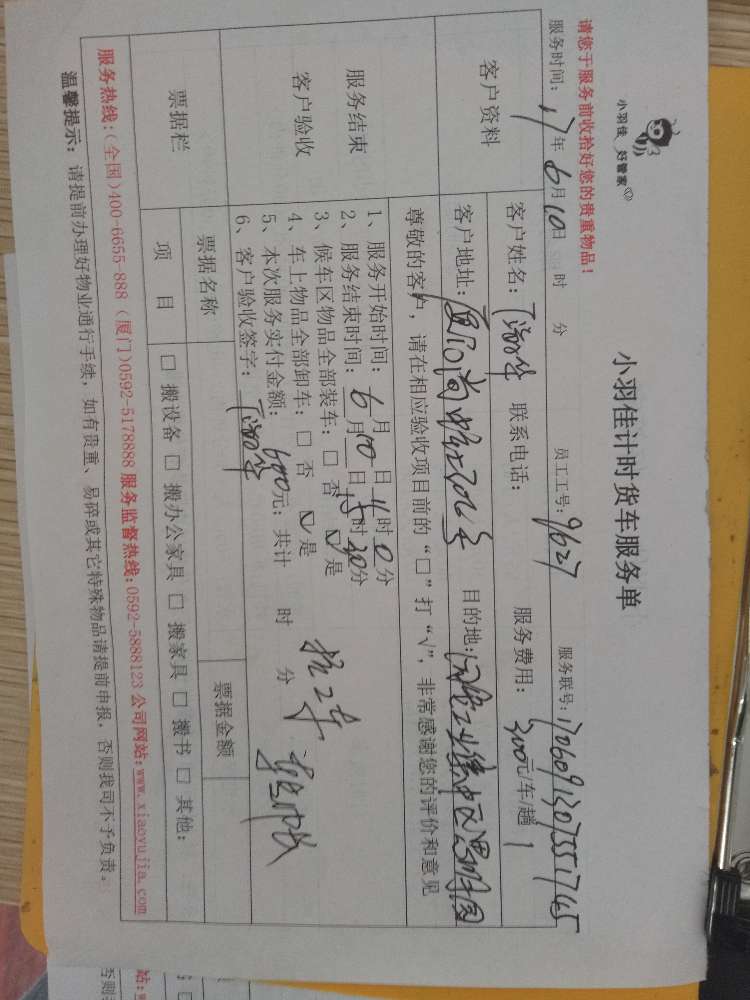 小羽佳 好管家
小羽佳计时货车服务单
请您于服务前收拾好您的贵重物品！
服务时间：17年6月10日 时 分 员工工号：9627 服务联号：
客户资料
客户姓名： 联系电话： 服务费用：300元/车/趟
客户地址： 目的地：
尊敬的客户，请在相应验收项目前的“□”打“√”，非常感谢您的评价和意见
服务结束
客户验收
1、服务开始时间：6月10日11时0分
2、服务结束时间：6月10日15时30分
3、候车区物品全部装车：□ 否 ☑ 是
4、车上物品全部卸车：□ 否 ☑ 是
5、本次服务实付金额：600元；共计 时 分
6、客户验收签字：
票据栏
票据名称 票据金额
项 目 □ 搬设备 □ 搬办公家具 □ 搬家具 □ 搬书 □ 其他：
服务热线：(全国)400-6655-888 (厦门)0592-5178888 服务监督热线：0592-5888123 公司网站：www.xiaoyujia.com
温馨提示：请提前办理好物业通行手续，如有贵重、易碎或其它特殊物品请提前申报，否则我司不予负责。